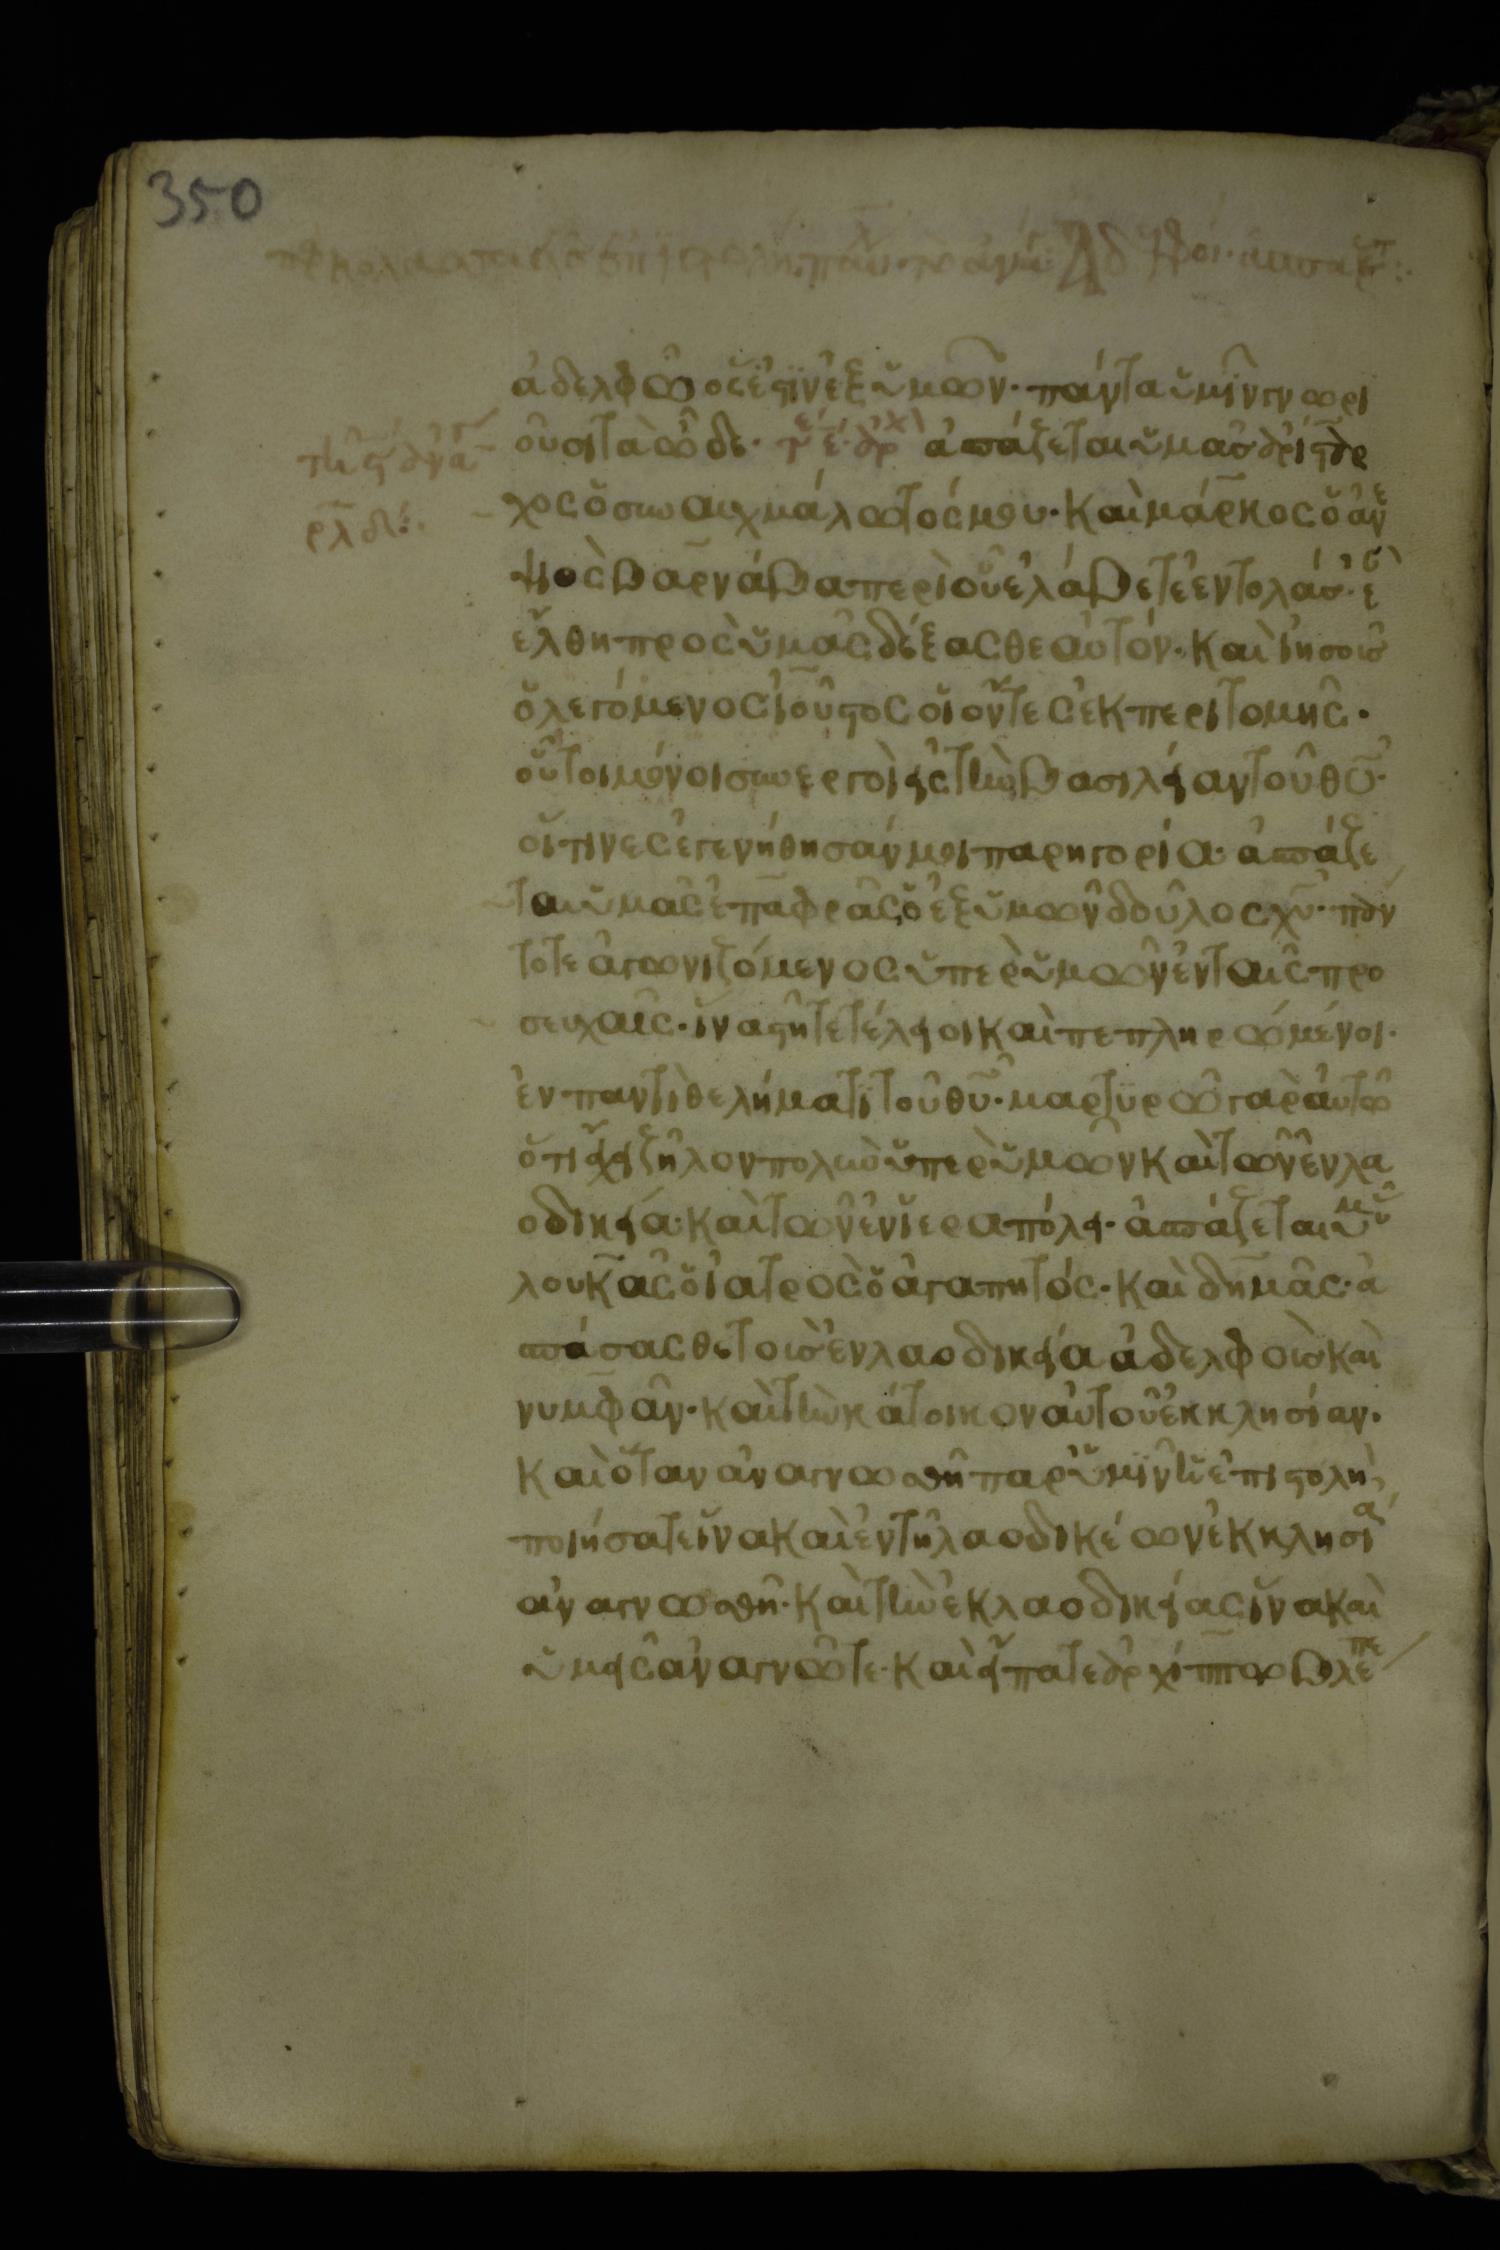 350
ἀδελφῶ ὅς ἐστιν ἐξ ὑμῶν· πάντα ὑμῖν γνωρι
οῦσι τὰ ὧδε· ἀσπάζεται ὑμᾶς ἀρίσταρ
χος ὁ συναιχμάλωτός μου· καὶ μάρκος ὁ ἀνε
ψιὸς βαρνάβα περὶ οὗ ἐλάβετε ἐντολάς· ἐὰν
ἔλθη πρὸς ὑμᾶς δέξασθε αὐτόν· καὶ ἰησοῦς
ὁ λεγόμενος ἰοῦστος οἱ ὄντες ἐκ περιτομῆς·
οὗτοι μόνοι συνεργοὶ εἰς τὴν βασιλείαν τοῦ θῦ·
οἵτινες ἐγενήθησάν μοι παρηγορία· ἀσπάζε
ται ὑμᾶς ἐπαφρᾶς ὁ ἐξ ὑμῶν δοῦλος χῦ· πάν
τοτε ἀγωνιζόμενος ὑπὲρ ὑμῶν ἐν ταῖς προ
σευχαῖς· ἵνα στῆτε τέλειοι καὶ πεπληρωμένοι·
ἐν παντὶ θελήματι τοῦ θῦ· μαρτυρῶ γὰρ αὐτῶ
ὅτι ἔχει ζῆλον πολὺν ὑπὲρ ὑμῶν καὶ τῶν ἐν λα
οδικεία· καὶ τῶν ἐν ἱεραπόλει· ἀσπάζεται ὑμᾶς
λουκᾶς ὁ ἰατρὸς ὁ ἀγαπητός· καὶ δημᾶς· ἀ
σπάσασθε τοὺς ἐν λαοδικεία ἀδελφοὺς καὶ
νυμφᾶν· καὶ τὴν κατ οἶκον αὐτοῦ ἐκκλησίαν·
καὶ ὅταν ἀναγνωσθῆ παρ ὑμῖν ἡ ἐπιστολὴ
ποιήσατε ἵνα καὶ ἐν τῆ λαοδικέων ἐκκλησία
ἀναγνωσθῆ· καὶ τὴν ἐκ λαοδικείας ἵνα καὶ
ὑμεῖς ἀναγνῶτε· καὶ εἴπατε ἀρχίππω βλέπε